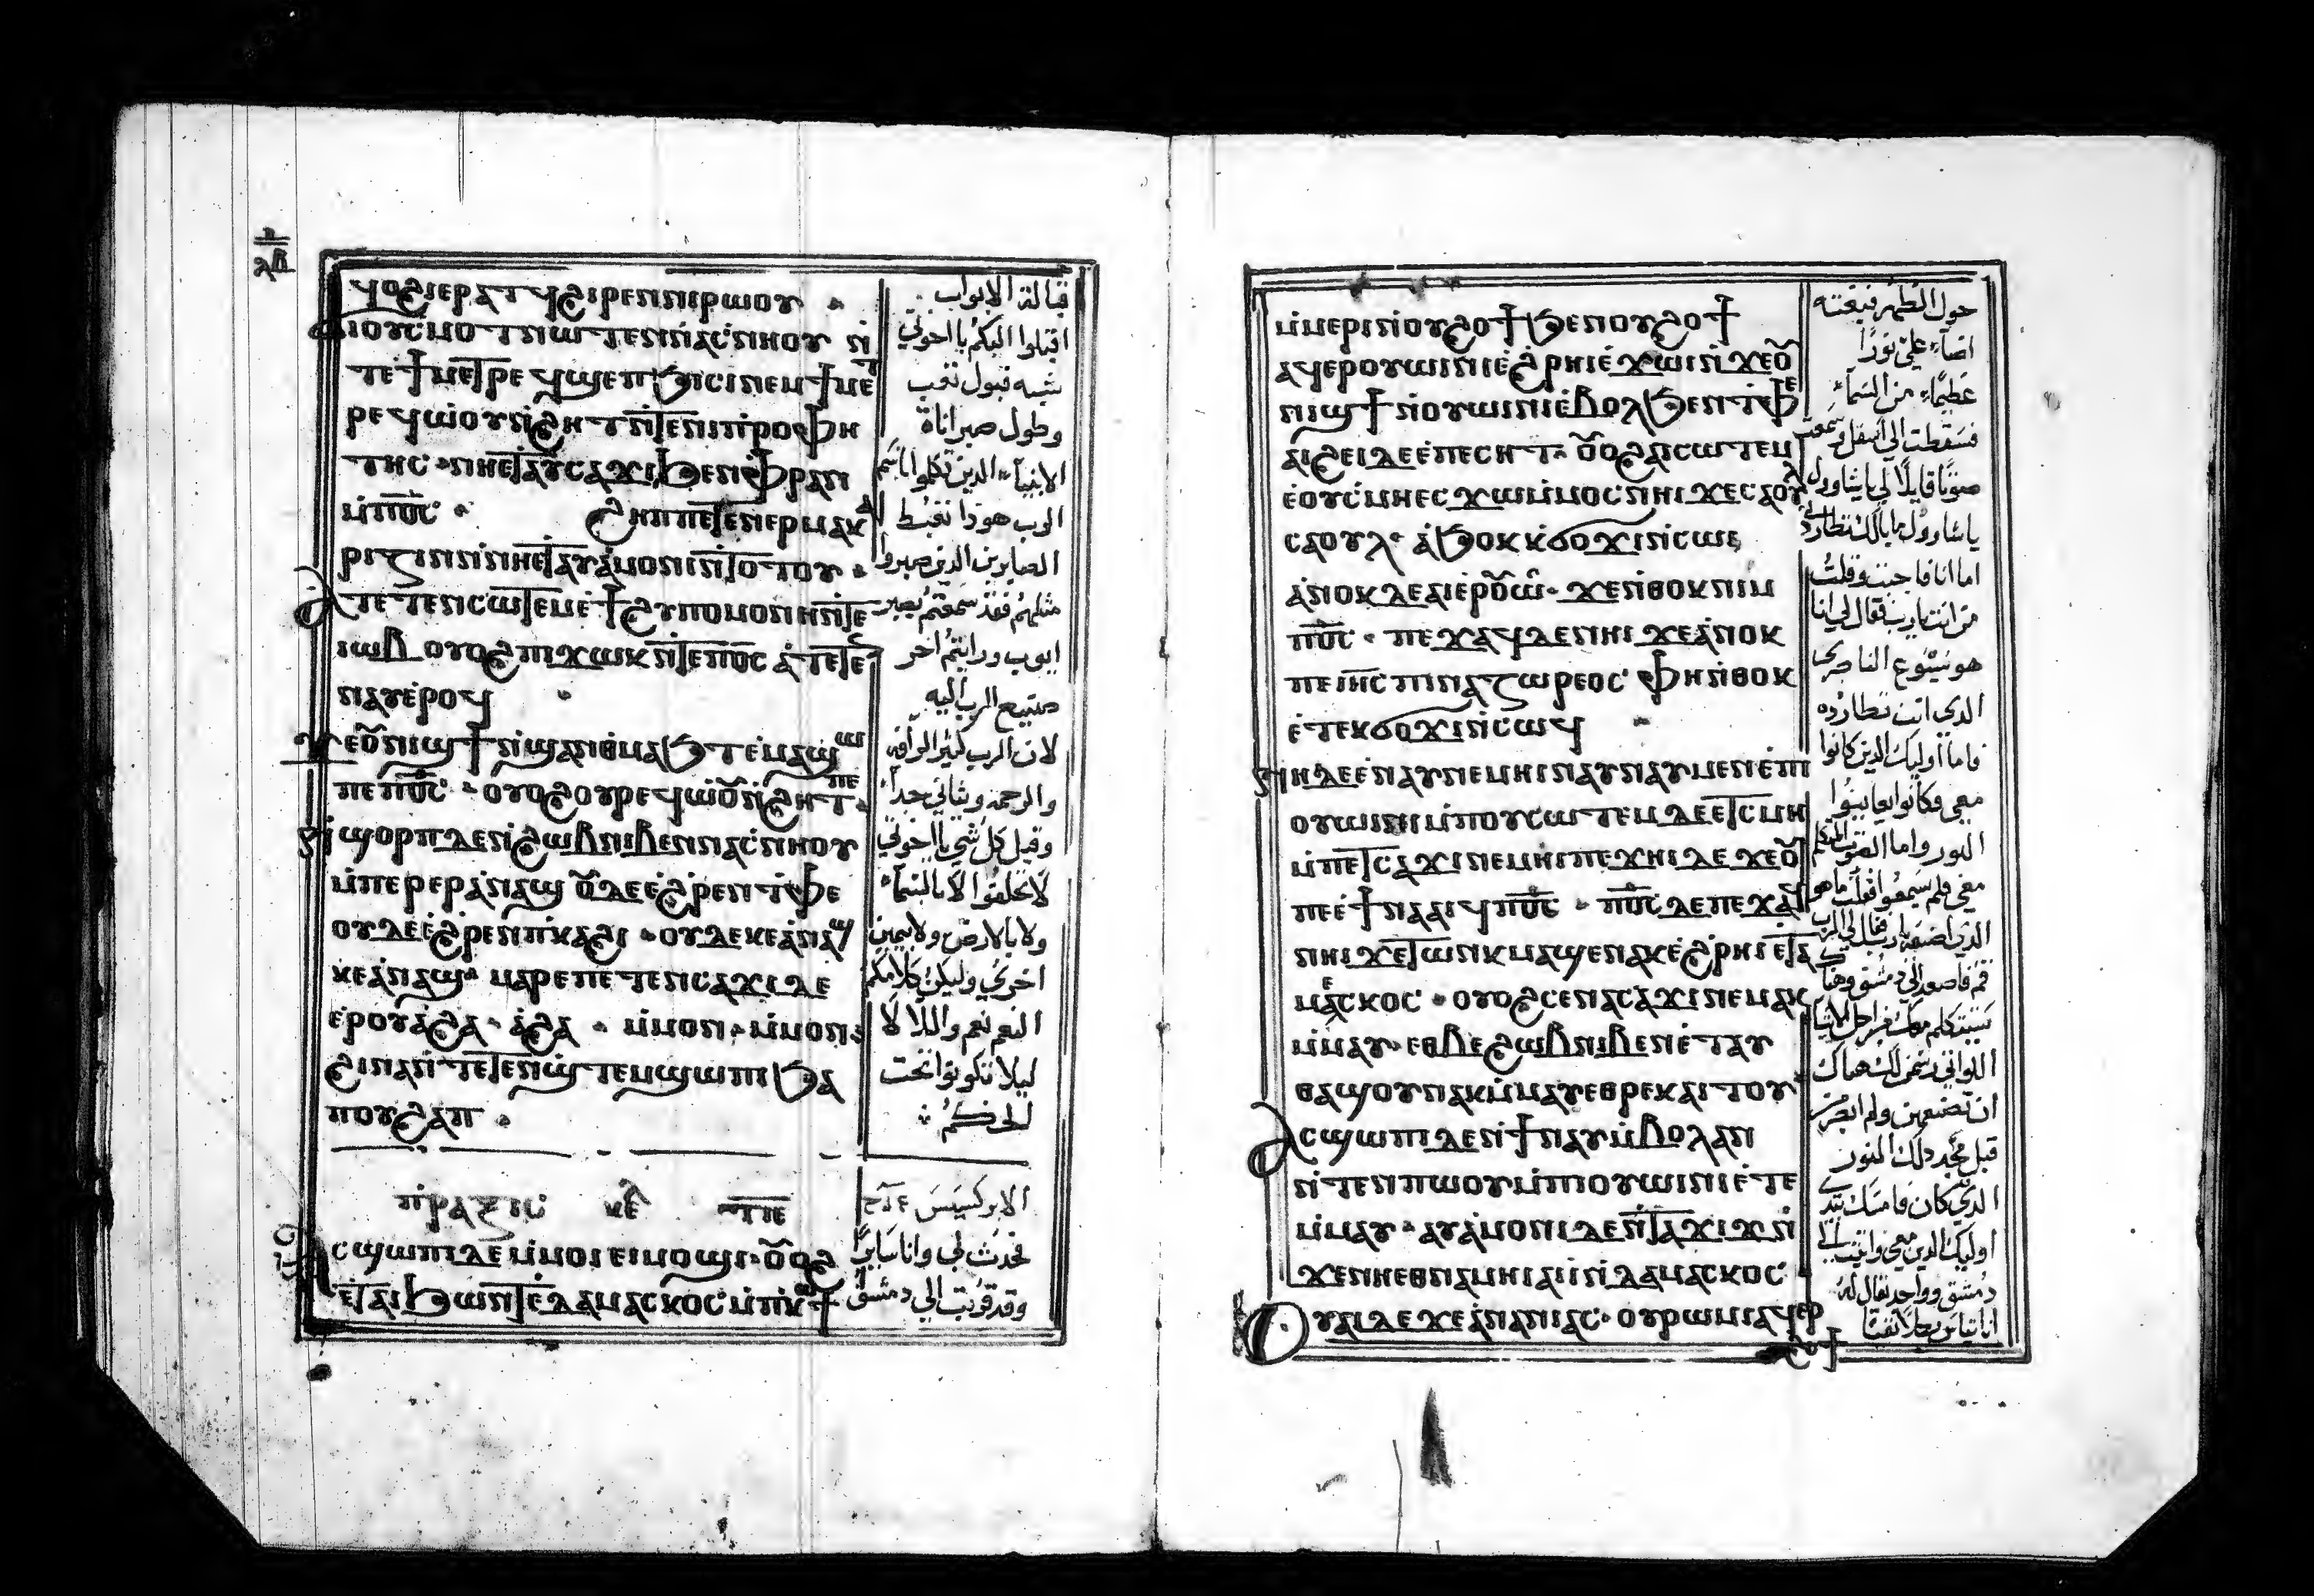 ϥⲟϩⲓⲉⲣⲁⲧϥϩⲓⲣⲉⲛⲛⲓⲣⲱⲟⲩ
ϭⲓⲟⲩⲥⲙⲟⲧⲛⲱⲧⲉⲛⲛⲁⲥⲛⲏⲟⲩ ⲛ̀
ⲧⲉϯⲙⲉⲧⲣⲉϥϣⲉⲡϧⲓⲥⲓⲛⲉⲙϯⲙⲉⲧ
ⲣⲉϥⲱⲟⲩⲛ̀ϩⲏⲧⲛ̀ⲧⲉⲛⲓⲡⲣⲟⲫⲏ
ⲧⲏⲥ ⲛⲏⲉⲧⲁⲩⲥⲁϫⲓϧⲉⲛⲫⲣⲁⲛ
ⲙ̀ⲡⲟ̅ⲥ̅ ϩⲏⲡⲡⲉⲧⲉⲛⲉⲣⲙⲁⲕⲁ
ⲣⲓⲍⲓⲛⲛ̀ⲛⲏⲉⲧⲁⲩⲁ̀ⲙⲟⲛⲓⲛ̀ⲧⲟⲧⲟⲩ
ⲁⲧⲉⲧⲉⲛⲥⲱⲧⲉⲙⲉ̀ϯϩⲩⲡⲟⲙⲟⲛⲏⲛ̀ⲧⲉ
ⲓⲱⲃ ⲟⲩⲟϩⲡⲓϫⲱⲕⲛ̀ⲧⲉⲡⲟ̅ⲥ̅ ⲁ̀ⲧⲉⲧⲉ
ⲛⲁⲩⲉ̀ⲣⲟϥ
ϫⲉⲟⲩⲛⲓϣϯⲛ̀ϣⲁⲛⲑⲙⲁϧⲧⲉⲙⲁϣⲱ
ⲡⲉⲡⲟ̅ⲥ̅ ⲟⲩⲟϩⲟⲩⲣⲉϥⲱⲟⲩⲛ̀ϩⲏⲧⲡⲉ
ϣⲟⲣⲡⲇⲉⲛ̀ϩⲱⲃⲛⲓⲃⲉⲛⲛⲁⲥⲛⲏⲟⲩ
ⲙ̀ⲡⲉⲣⲉⲣⲁ̀ⲛⲁϣ ⲟⲩⲇⲉⲉ̀ϩⲣⲉⲛⲧ̀ⲫⲉ
ⲟⲩⲇⲉⲉ̀ϩⲣⲉⲛⲡ̀ⲕⲁϩⲓ ⲟⲩⲇⲉⲕⲉⲁ̀ⲛⲁϣ
ⲕⲉⲁ̀ⲛⲁϣ ⲙⲁⲣⲉⲡⲉⲧⲉⲛⲥⲁϫⲓⲇⲉ
ⲉⲣⲟⲩⲁ̀ϩⲁ ⲁ̀ϩⲁ ⲙ̀ⲙⲟⲛ ⲙ̀ⲙⲟⲛ
ϩⲓⲛⲁⲛ̀ⲧⲉⲧⲉⲛϣ̀ⲧⲉⲙϣⲱⲡⲓϧⲁ
ⲡⲟⲩϩⲁⲡ
ⲡⲣⲁⲝⲓⲥ ⲕⲉ
ⲁⲥϣⲱⲡⲓⲇⲉⲙ̀ⲙⲟⲓⲉⲓⲙⲟϣⲓ ⲟⲩⲟϩ
ⲉⲧⲁⲓϧⲱⲛⲧⲉ̀ⲇⲁⲙⲁⲥⲕⲟⲥⲙ̀ⲡ̀ⲕⲱϯ
قبالة الابواب
اقبلوا اليكم يا اخوتي
شبه قبول تعب
وطول صبر اناة
الانبياء الذين تكلموا باسم
الرب هوذا نغبط
الصابرين الذين صبروا
مثلهم فقد سمعتم بصبر
ايوب ورايتم اخر
صنيع الرب اليه
لان الرب كثير الرأفه
والرحمه وبتاني جداً
وقبل كل شي يا اخوتي
لا تحلفوا لا بالسماء
ولا بالارض ولا بيمين
اخري وليكن كلامكم
النعم نعم واللا لا
ليلا تكونوا تحت
الحكم
الابركسيس
فحدث لي وانا سايراً
وقد قربت الي دمشق
ⲙ̀ⲙⲉⲣⲓⲛⲓⲟⲩϩⲟϯϧⲉⲛⲟⲩϩⲟϯ
ⲁϥⲉⲣⲟⲩⲱⲓⲛⲓⲉ̀ϩⲣⲏⲓⲉ̀ϫⲱⲓⲛ̀ϫⲉⲟⲩ
ⲛⲓϣϯⲛ̀ⲟⲩⲱⲓⲛⲓⲉ̀ⲃⲟⲗϧⲉⲛⲧ̀ⲫⲉ
ⲁⲓϩⲉⲓⲇⲉⲉ̀ⲡⲉⲥⲏⲧ ⲟⲩⲟϩⲁⲓⲥⲱⲧⲉⲙ
ⲉ̀ⲟⲩⲥⲙⲏⲉⲥϫⲱⲙ̀ⲙⲟⲥⲛⲏⲓ ϫⲉⲥⲁⲟⲩⲗ
ⲥⲁⲟⲩⲗ ⲁ̀ϧⲟⲕⲕϭⲟϫⲓⲛ̀ⲥⲱⲓ
ⲁ̀ⲛⲟⲕⲇⲉⲁⲓⲉⲣⲟⲩⲱ̀ ϫⲉⲛ̀ⲑⲟⲕⲛⲓⲙ
ⲡⲟ̅ⲥ̅ ⲡⲉϫⲁϥⲇⲉⲛⲏⲓ ϫⲉⲁ̀ⲛⲟⲕ
ⲡⲉⲓⲏ̅ⲥ̅ ⲡⲓⲛⲁⲍⲱⲣⲉⲟⲥ ⲫⲏⲛ̀ⲑⲟⲕ
ⲉ̀ⲧⲉⲕϭⲟϫⲓⲛ̀ⲥⲱϥ
ⲛⲏⲇⲉⲉ̀ⲛⲁⲩⲛⲉⲙⲏⲓⲛⲁⲩⲛⲁⲩⲙⲉⲛⲉ̀ⲡⲓ
ⲟⲩⲱⲓⲛⲓⲙ̀ⲡⲟⲩⲥⲱⲧⲉⲙⲇⲉⲉ̀ⲧⲥⲙⲏ
ⲙ̀ⲡⲉⲧⲥⲁϫⲓⲛⲉⲙⲏⲓⲡⲉϫⲏⲓⲇⲉ ϫⲉⲟⲩ
ⲡⲉⲉ̀ϯⲛⲁⲁⲓϥⲡⲟ̅ⲥ̅ ⲡⲟ̅ⲥ̅ⲇⲉⲡⲉϫⲁϥ
ⲛⲏⲓϫⲉⲧⲱⲛⲕⲙⲁϣⲉⲛⲁⲕⲉ̀ϩⲣⲏⲓⲉ̀ⲧⲁ
ⲙⲁⲥⲕⲟⲥ ⲟⲩⲟϩⲥⲉⲛⲁⲥⲁϫⲓⲛⲉⲙⲁⲕ
ⲙ̀ⲙⲁⲩ ⲉⲑⲃⲉϩⲱⲃⲛⲓⲃⲉⲛⲉ̀ⲧⲁⲩ
ⲑⲁϣⲟⲩⲛⲁⲕⲙ̀ⲙⲁⲩⲉⲑⲣⲉⲕⲁⲓⲧⲟⲩ
ⲁⲥϣⲱⲡⲓⲇⲉⲛ̀ϯⲛⲁⲩⲙ̀ⲃⲟⲗⲁⲛ
ⲛ̀ⲧⲉⲛⲡⲱⲟⲩⲙ̀ⲡⲓⲟⲩⲱⲓⲛⲓⲉ̀ⲧⲉ
ⲙ̀ⲙⲁⲩ ⲁⲩⲁ̀ⲙⲟⲛⲓⲇⲉⲛ̀ⲧⲁϫⲓϫⲛ̀
ϫⲉⲛⲏⲉⲑⲛⲁⲙⲏⲓⲁⲓⲓ̀ⲛ̀ⲇⲁⲙⲁⲥⲕⲟⲥ
ⲟⲩⲁⲓⲇⲉϫⲉⲁ̀ⲛⲁⲛⲓⲁⲥ ⲟⲩⲣⲱⲙⲓⲁϥⲉⲣ
ϩⲟϯ
حول الظهر فبغته
اضاء علي نوراً
عظيماً من السماء
فسقطت الي اسفل وسمعت
صوتاً قايلاً لي يا شاوول
يا شاوول ما بالك تطاردني
اما انا فاجبت وقلت
من انت يارب فقال لي انا
هو يسوع الناصري
الذي انت تطارده
فاما اوليك الذين كانوا
معي فكانوا يعاينوا
النور واما الصوت المتكلم
معي فلم يسمعوا فقلت ما هو
الذي اصنعه يارب فقال لي الرب
قم فاصعد الي دمشق وهناك
اللواتي رسمن لك هناك
ان تصنعهن ولم ابصر من
قبل مجد ذلك النور
الذي كان فامسك بيدي
اوليك الذين معي واتيت الي
دمشق وواحد يقال له